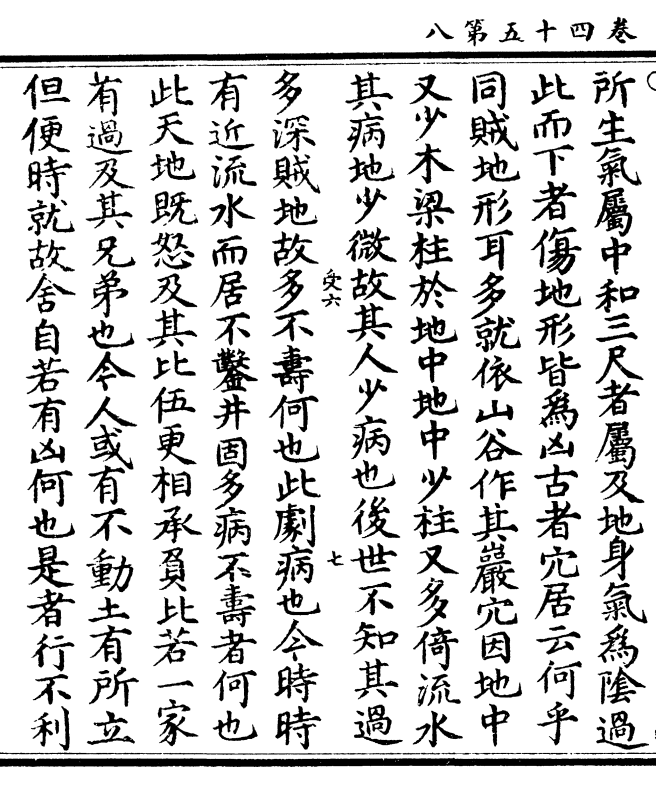 卷四十五第八
所生氣屬中和三尺者屬及地身氣爲陰過
此而下者傷地形皆爲凶古者穴居云何乎
同賊地形耳多就依山谷作其巖穴因地中
又少木梁柱於地中地中少柱又多倚流水
其病地少微故其人少病也後世不知其過
受六
七
多深賊地故多不壽何也此劇病也今時時
有近流水而居不鑿井固多病不壽者何也
此天地既怒及其比伍更相承負比若一家
有過及其兄弟也今人或有不動土有所立
但便時就故舍自若有凶何也是者行不利